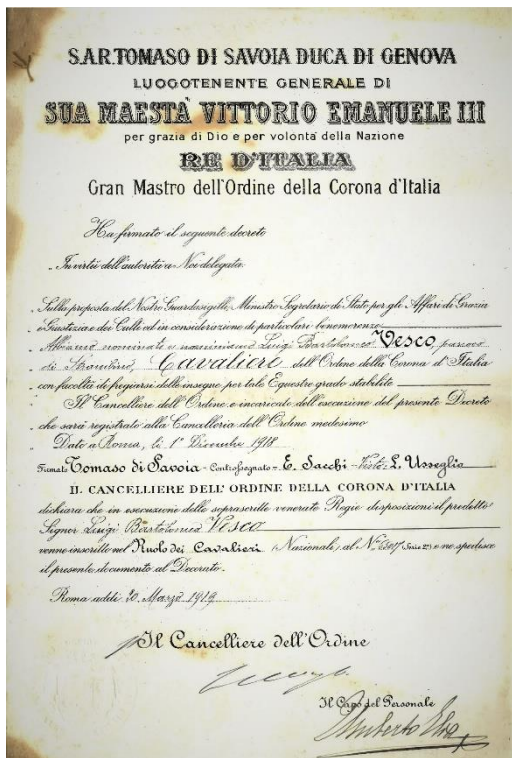 S.A.R. TOMASO DI SAVOIA DUCA DI GENOVA
LUOGOTENENTE GENERALE DI
SUA MAESTÀ VITTORIO EMANUELE III
per grazia di Dio e per volontà della Nazione
RE D'ITALIA
Gran Mastro dell'Ordine della Corona d'Italia
Ha firmato il seguente decreto
In virtù dell'autorità a Noi delegata
Sulla proposta del Nostro Guardasigilli, Ministro Segretario di Stato per gli Affari di Grazia
e Giustizia e dei Culti ed in considerazione di particolari benemerenze
Abbiamo nominato e nominiamo Luigi Bartolomeo Vesco, parroco
di Strambino, Cavaliere dell'Ordine della Corona d'Italia
con facoltà di fregiarsi delle insegne per tale Equestre grado stabilite
Il Cancelliere dell'Ordine è incaricato dell'esecuzione del presente Decreto
che sarà registrato alla Cancelleria dell'Ordine medesimo
Dato a Roma, li 1° Dicembre 1918
Firmato Tomaso di Savoia - Controfirmato - E. Sacchi - Visto - L. Usseglio
IL CANCELLIERE DELL'ORDINE DELLA CORONA D'ITALIA
dichiara che in esecuzione delle soprascritte venerate Regie disposizioni il predetto
Signor Luigi Bartolomeo Vesco
venne inscritto nel Ruolo dei Cavalieri (Nazionali) al N° (Serie 2ª) e ne spedisce
il presente documento al Decorato.
Roma addì 20 Marzo 1919
Il Cancelliere dell'Ordine
Il Capo del Personale
Umberto